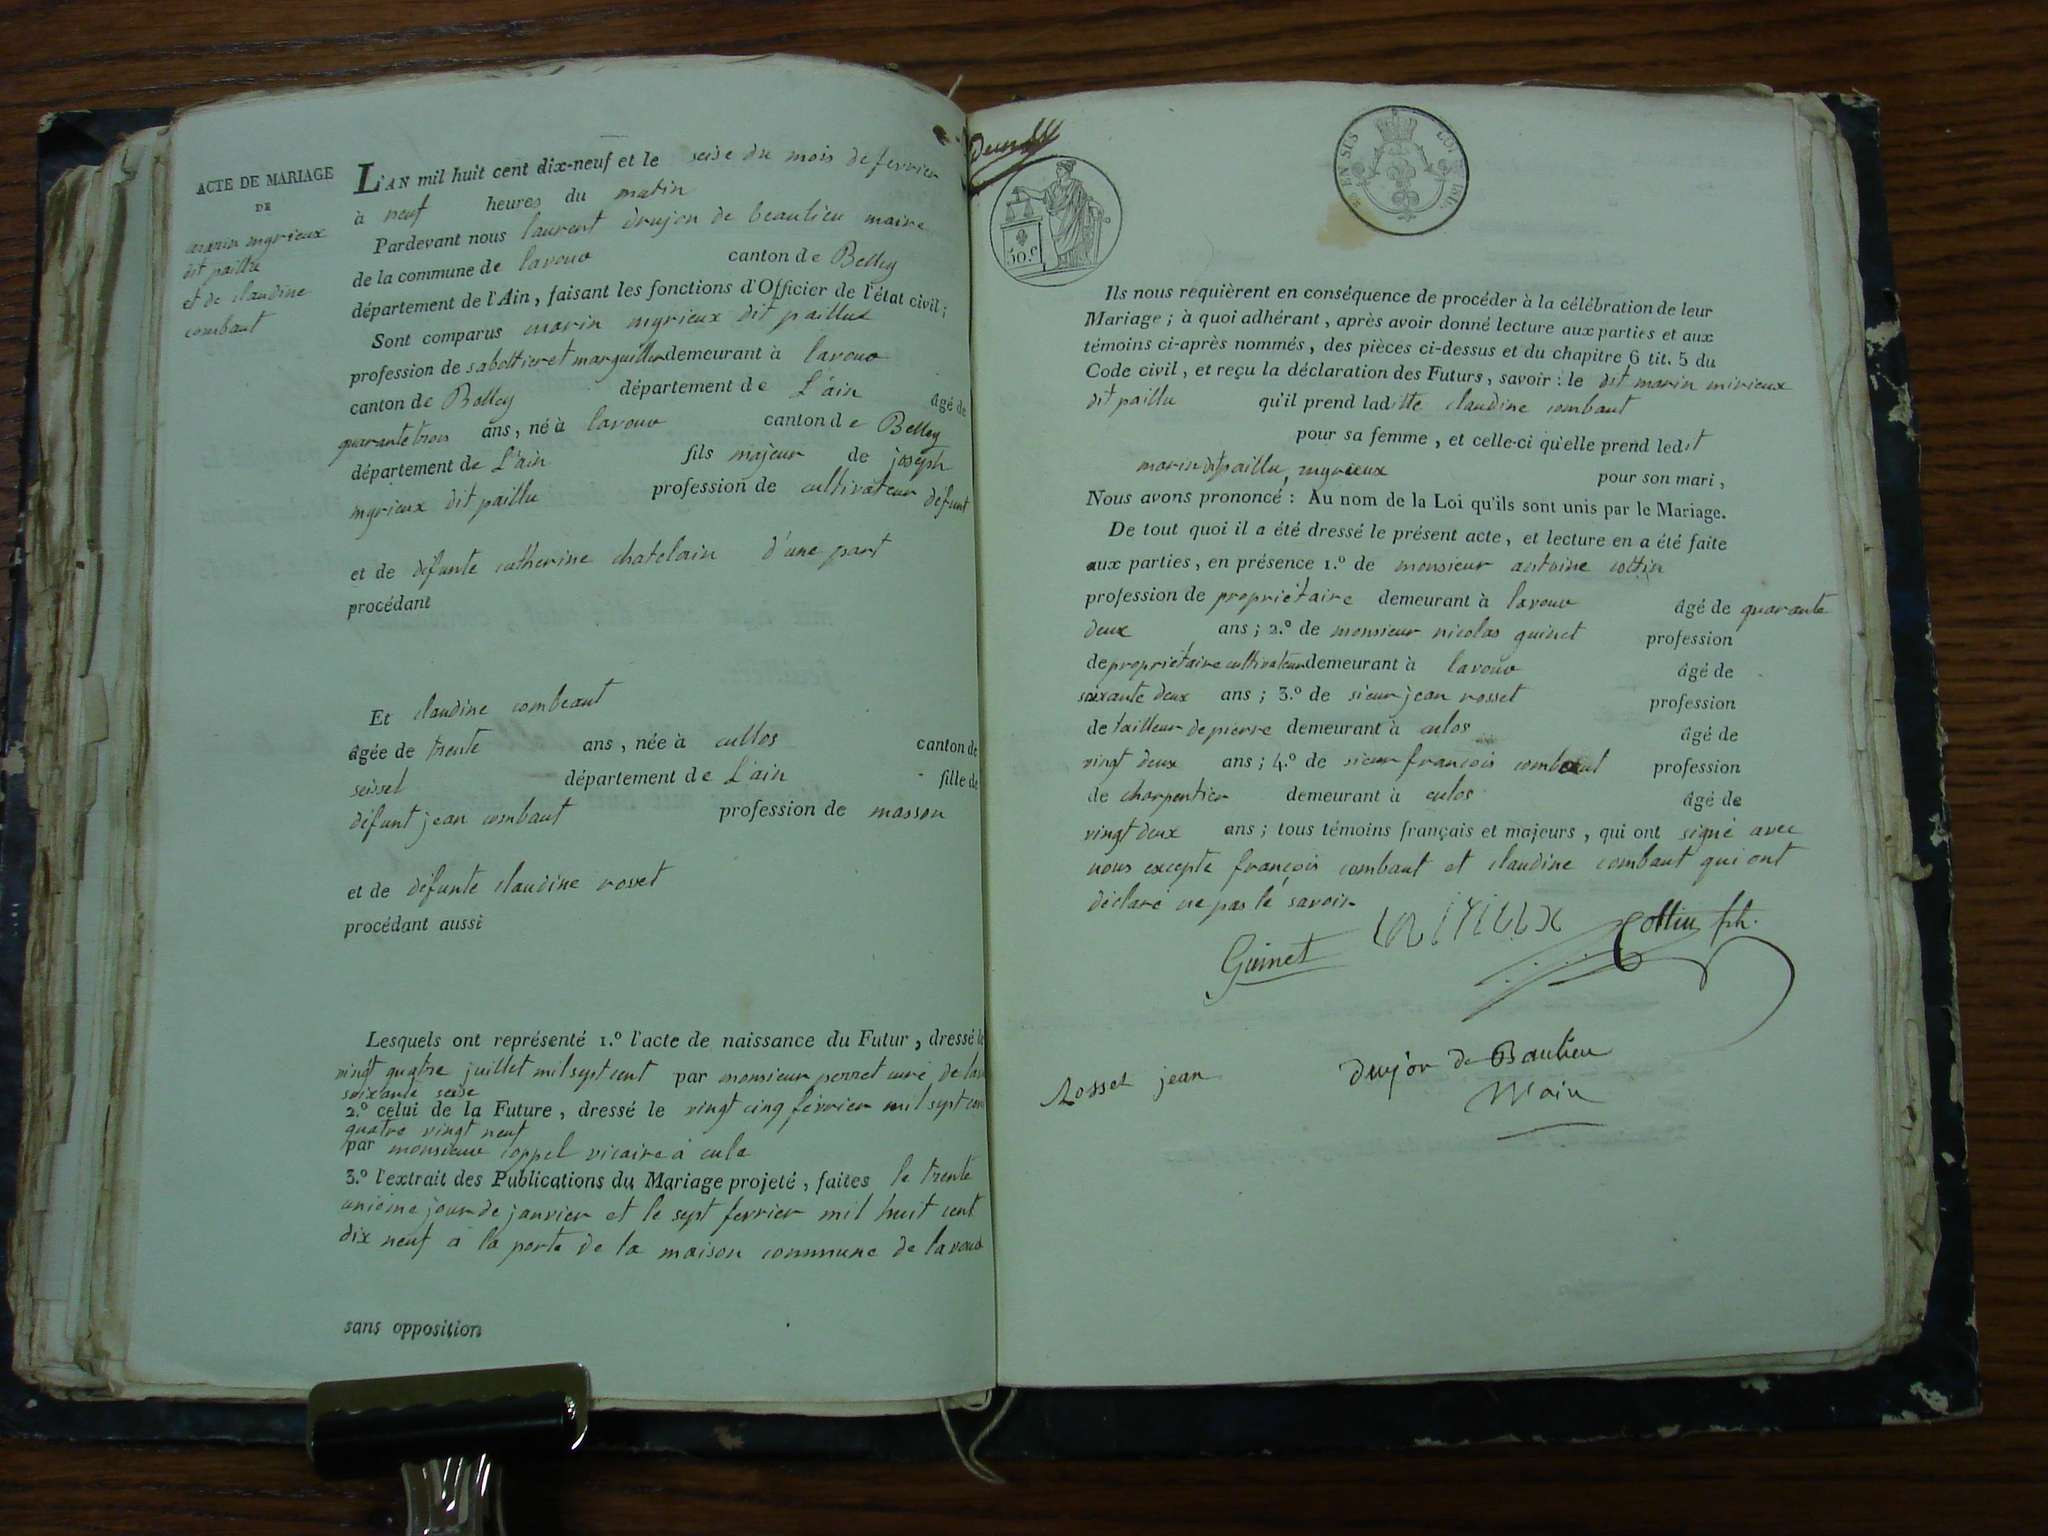 ACTE DE MARIAGE
DE
marin myrieux
dit paillu
et de claudine
combaut
L'AN mil huit cent dix-neuf et le seise du mois de fevrier
à neuf heures du matin
Pardevant nous laurent drujon de beaulieu maire
de la commune de lavour canton de Belley
département de l'Ain, faisant les fonctions d'Officier de l'état civil;
Sont comparus marin myrieux dit paillux
profession de sabottier et marguiller demeurant à lavour
canton de Belley département de L'ain âgé de
quarante trois ans, né à lavour canton de Belley
département de L'ain fils majeur de joseph
myrieux dit paillu profession de cultivateur défunt
et de défunte catherine chatelain d'une part
procédant
Et claudine combeaut
âgée de trente ans, née à cullos canton de
seissel département de L'ain fille de
défunt jean combaut profession de masson
et de défunte claudine rosset
procédant aussi
Lesquels ont représenté 1.º l'acte de naissance du Futur, dressé le
vingt quatre juillet mil sept cent par monsieur perret curé de
soixante seise
2.º celui de la Future, dressé le vingt cinq février mil sept cent
quatre vingt neuf
par monsieur coppel vicaire à cule
3.º l'extrait des Publications du Mariage projeté, faites le trente
unième jour de janvier et le sept fevrier mil huit cent
dix neuf à la porte de la maison commune de lavour
sans opposition
50.c
Ils nous requièrent en conséquence de procéder à la célébration de leur
Mariage; à quoi adhérant, après avoir donné lecture aux parties et aux
témoins ci-après nommés, des pièces ci-dessus et du chapitre 6 tit. 5 du
Code civil, et reçu la déclaration des Futurs, savoir: le dit marin mirieux
dit paillu qu'il prend laditte claudine combaut
pour sa femme, et celle-ci qu'elle prend ledit
marin dit paillu, myrieux pour son mari,
Nous avons prononcé: Au nom de la Loi qu'ils sont unis par le Mariage.
De tout quoi il a été dressé le présent acte, et lecture en a été faite
aux parties, en présence 1.º de monsieur antoine cottin
profession de propriétaire demeurant à lavour âgé de quarante
deux ans; 2.º de monsieur nicolas guinet profession
de propriétaire cultivateur demeurant à lavour âgé de
soixante deux ans; 3.º de sieur jean rosset profession
de tailleur de pierre demeurant à culos âgé de
vingt deux ans; 4.º de sieur françois combaut profession
de charpentier demeurant à culos âgé de
vingt deux ans; tous témoins français et majeurs, qui ont signé avec
nous excepte françois combaut et claudine combaut qui ont
déclaré ne pas le savoir
Guinet Cottin fih.
Rosset jean Drujon de Baulieu
Maire